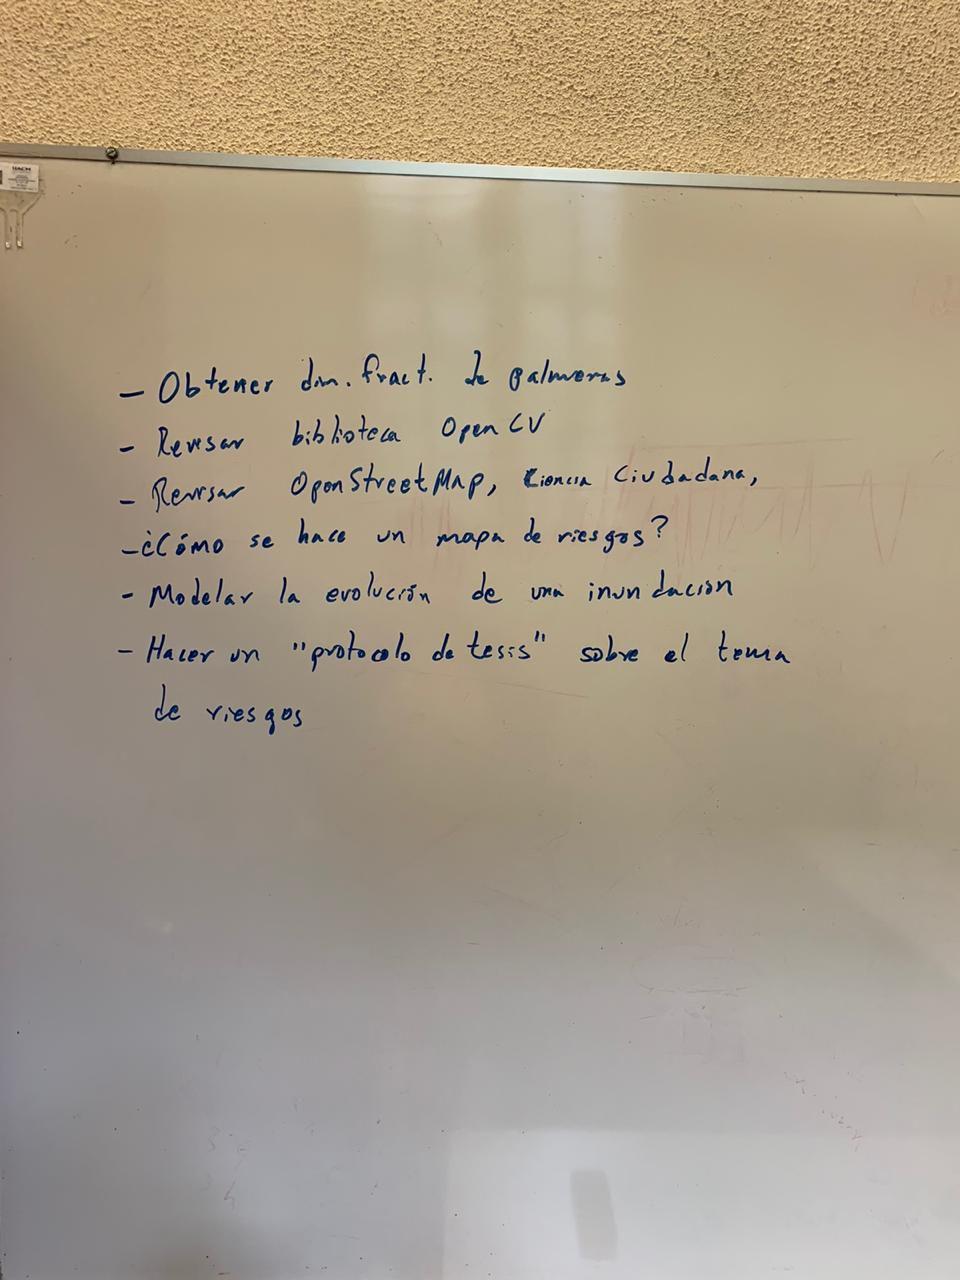 - Obtener dim. fract. de palmeras
- Revisar biblioteca OpenCV
- Revisar OpenStreetMap, Ciencia Ciudadana,
- ¿Cómo se hace un mapa de riesgos?
- Modelar la evolución de una inundación
- Hacer un "protocolo de tesis" sobre el tema
de riesgos